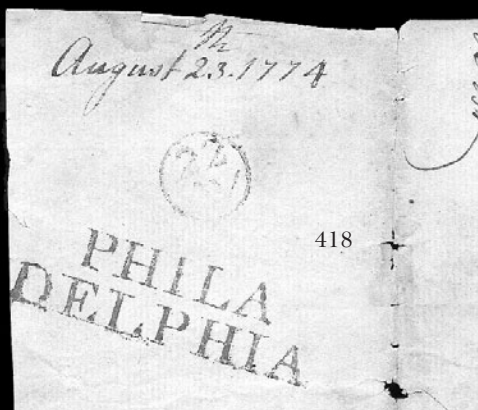 August 23. 1774
418
PHILA
DELPHIA